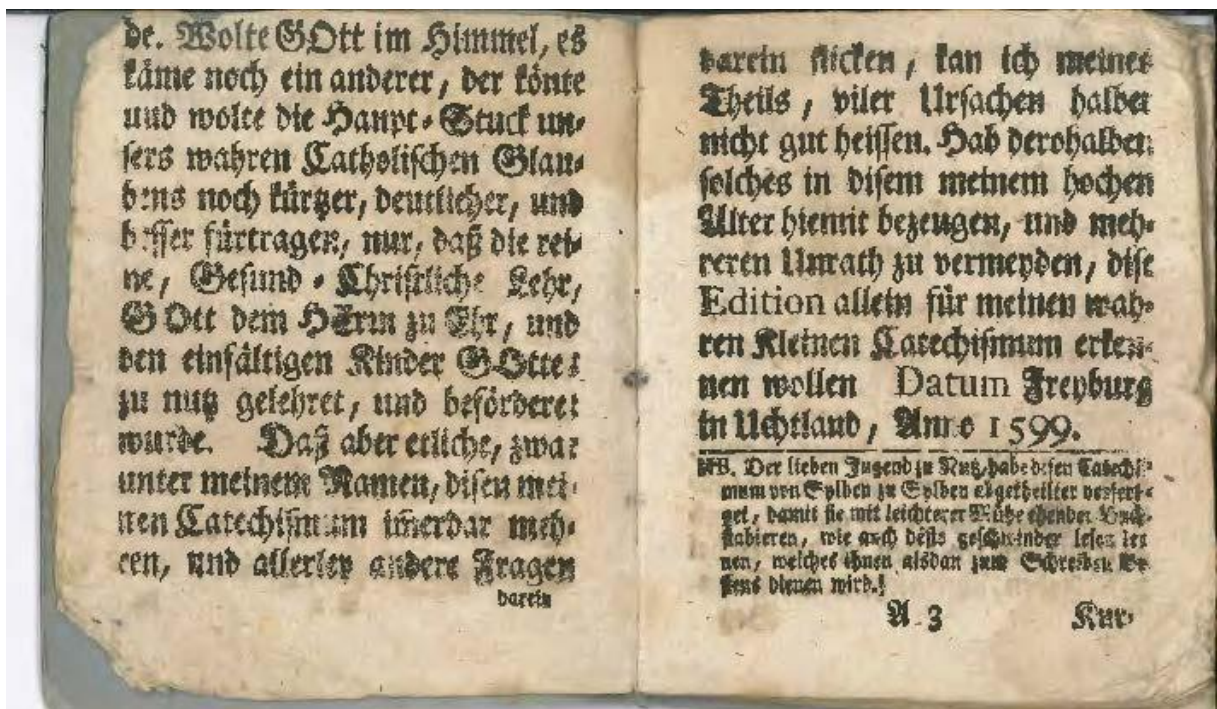 de. Wolte GOtt im Himmel, es
käme noch ein anderer, der könte
und wolte die Haupt-Stuck un-
sers wahren Catholischen Glau-
bens noch kürtzer, deutlicher, und
besser fürtragen, nur, daß die rei-
ne, Gesund-Christliche Lehr,
GOtt dem HErrn zu Ehr, und
den einfältigen Kinder GOttes
zu nutz gelehret, und befördert
wurde. Daß aber etliche, zwar
unter meinem Namen, disen mei-
nen Catechismum im̄erdar meh-
ren, und allerley andere Fragen
darein
darein flicken, kan ich meines
Theils, viler Ursachen halber
nicht gut heissen. Hab derohalben
solches in disem meinem hochen
Alter hiemit bezeugen, und meh-
reren Unrath zu vermeyden, dise
Edition allein für meinen wah-
ren Kleinen Catechismum erken-
nen wollen Datum Freyburg
in Uchtland, Anno 1599.
NB. Der lieben Jugend zu Nutz, habe disen Catechis-
mum von Sylben zu Sylben abgetheilter verfert-
get, damit sie mit leichterer Mühe ehender Buch-
stabieren, wie auch desto geschwinder lesen ler
nen, welches ihnen alsdan zum Schreiben be-
stens dienen wird.
A 3 Kur-